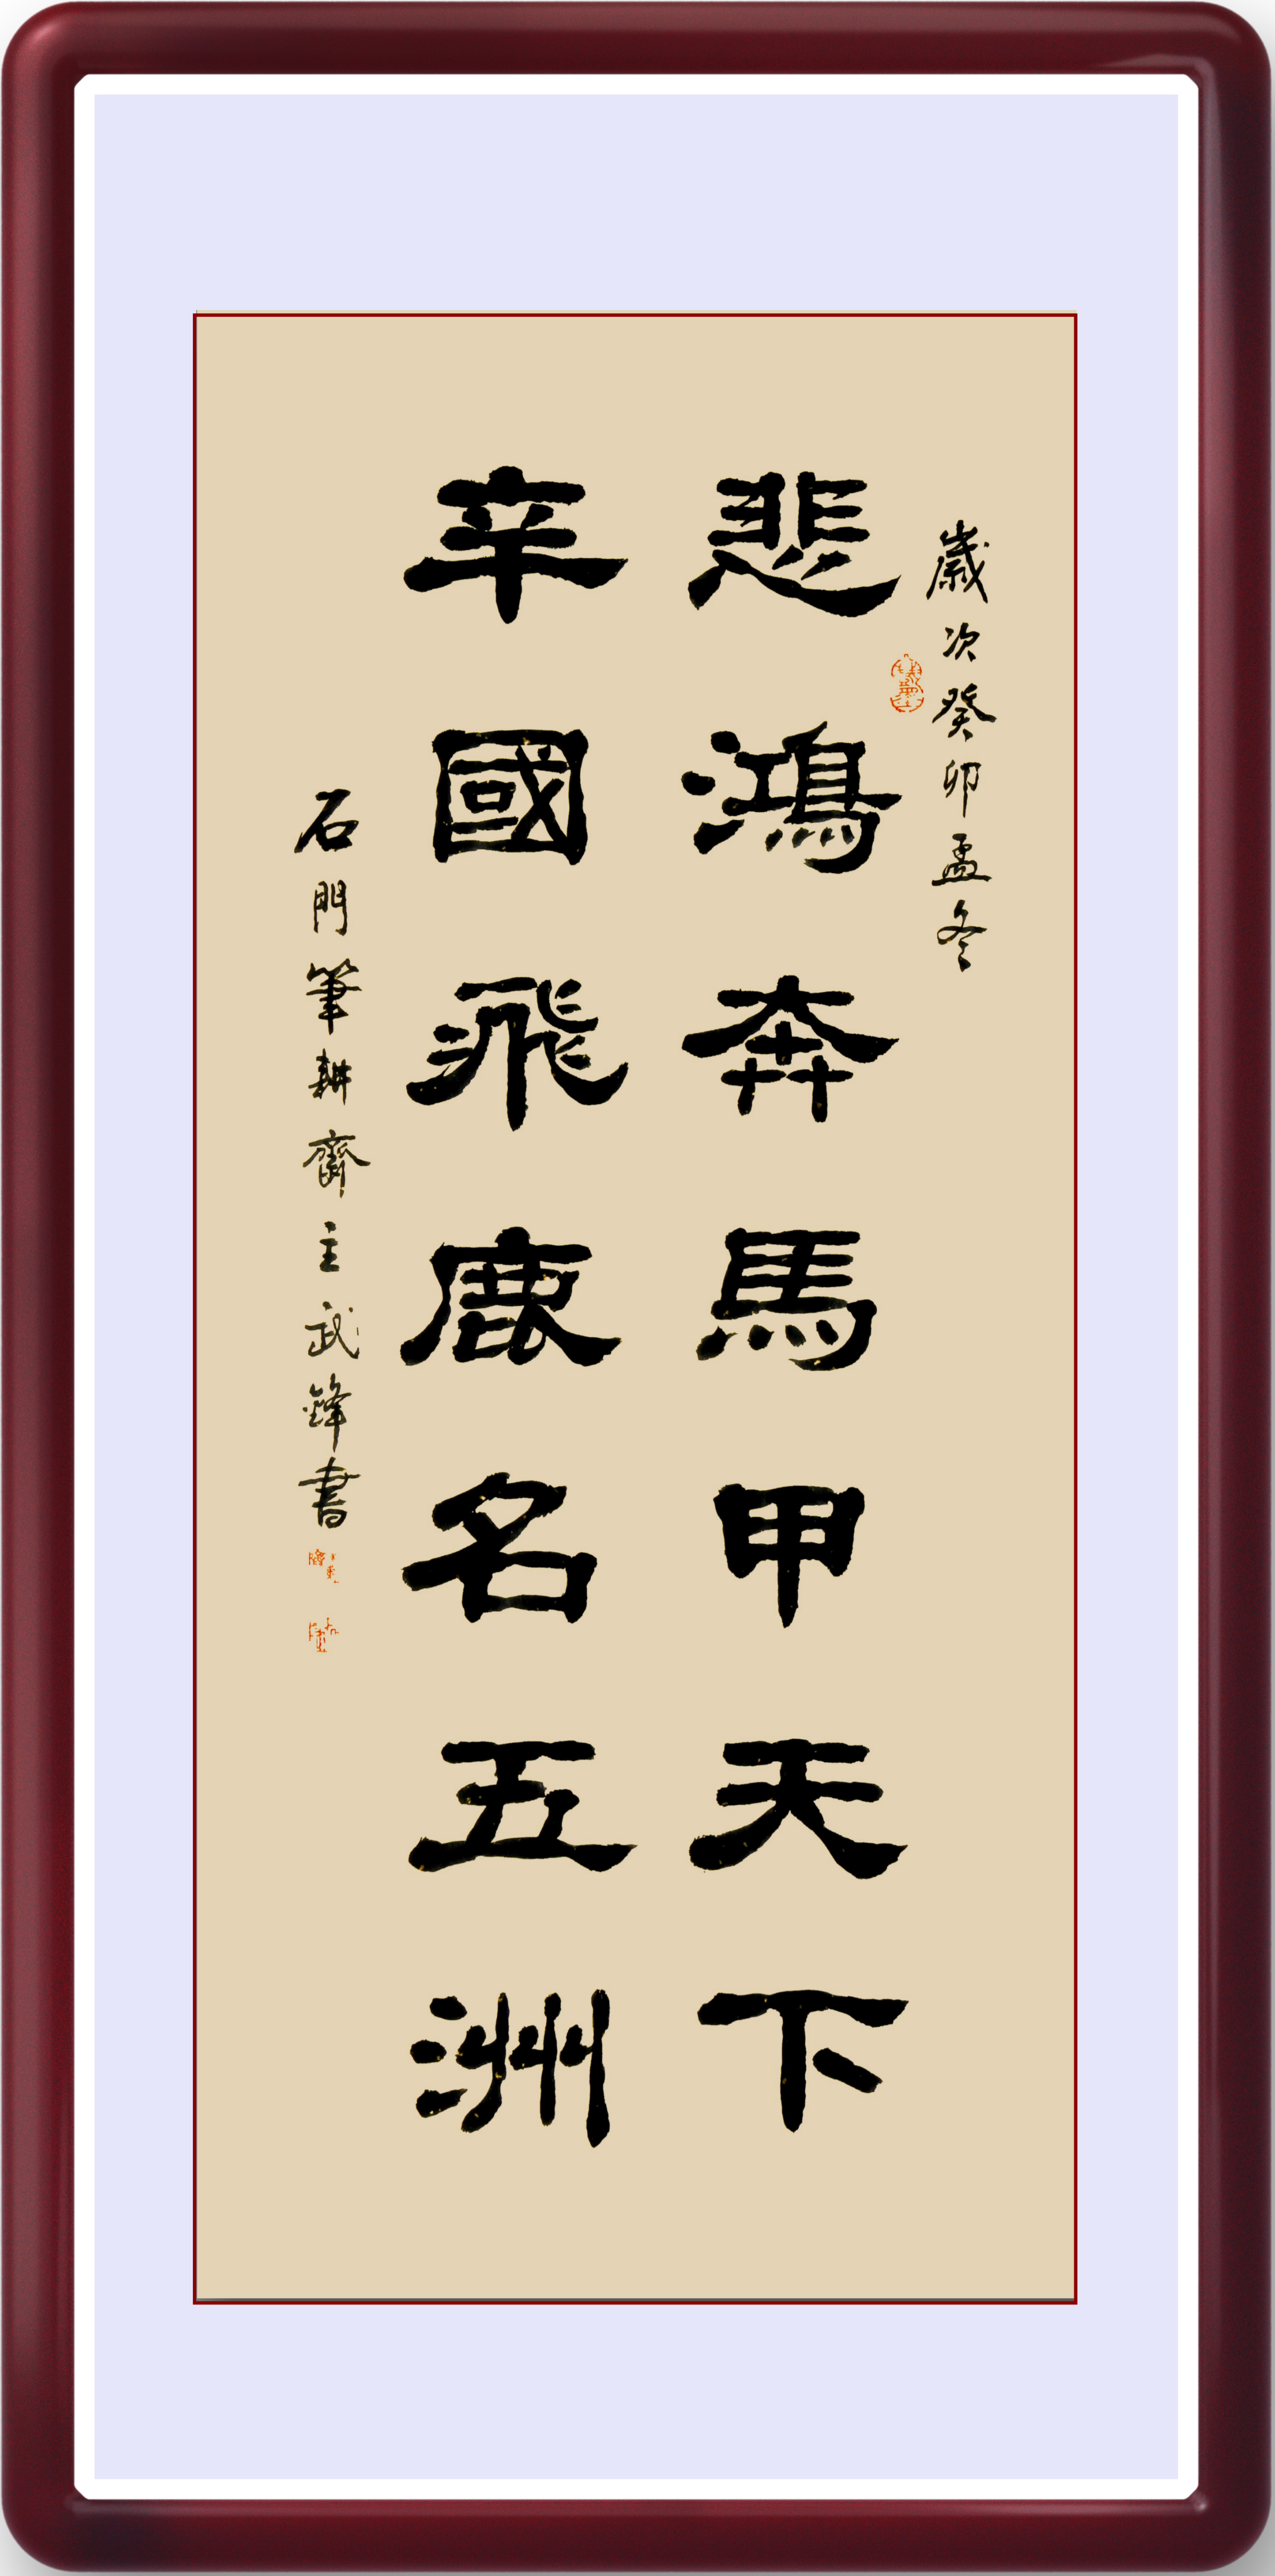 歲次癸卯孟冬
悲鴻奔馬甲天下
辛國飛鹿名五洲
石門筆耕齋主武鋒書